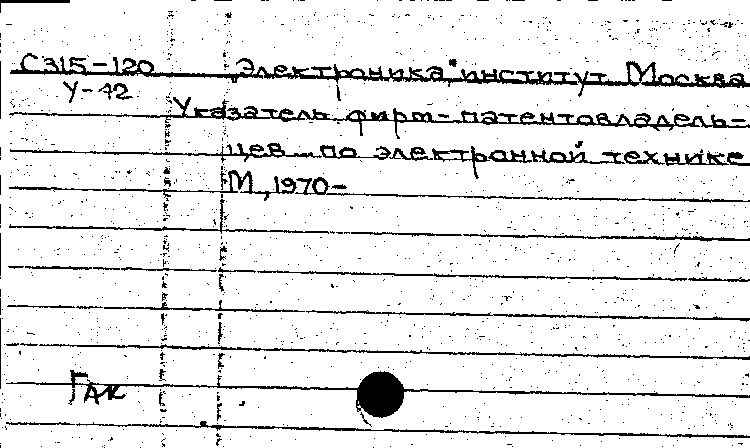 С315-120 „Электроника," институт. Москва
У-42 Указатель фирм-патентовладель-
цев по электронной технике
М., 1970-
Гак